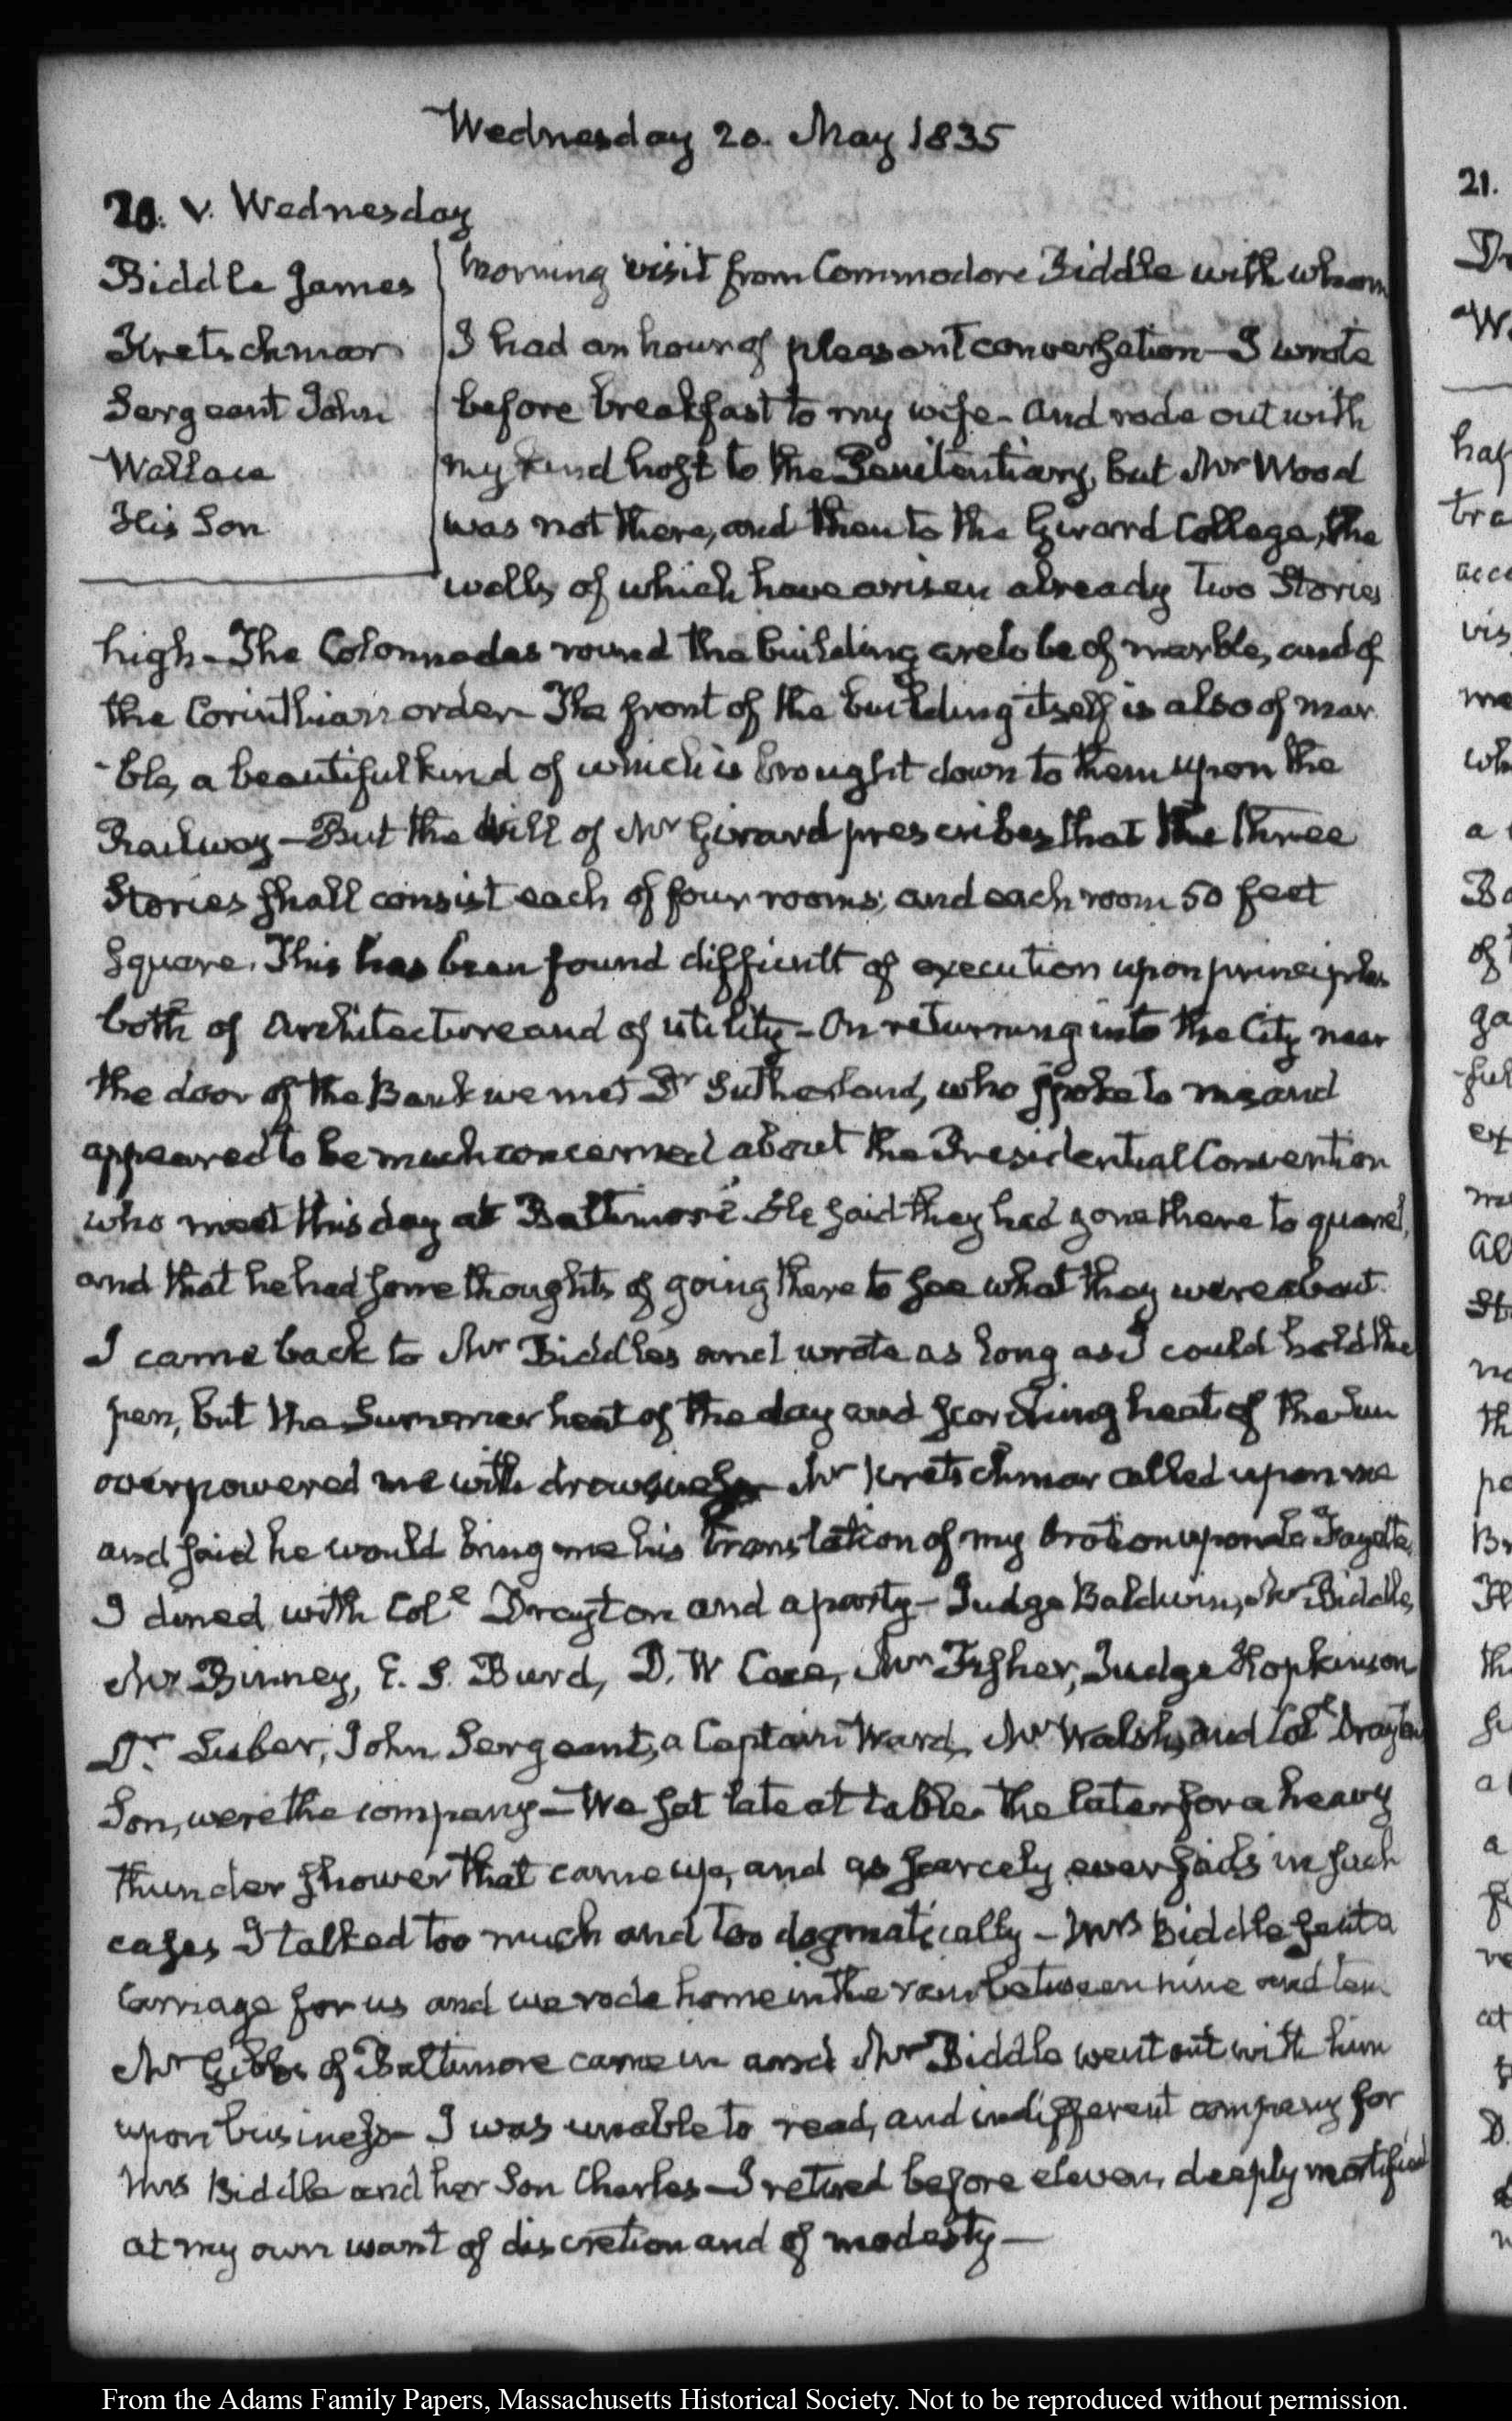 Wednesday 20. May 1835
20. V. Wednesday
Biddle James
Kretschmar
Sergeant John
Wallace
His Son
Morning visit from Commodore Biddle with whom
I had an hour of pleasant conversation — I wrote
before breakfast to my wife — and rode out with
my kind host to the Penitentiary, but Mr Wood
was not there, and then to the Girard College, the
walls of which have arisen already two Stories
high — The Colonnades round the building are to be of marble, and of
the Corinthian order — The front of the building itself is also of mar
-ble, a beautiful kind of which is brought down to them upon the
Railway — But the Will of Mr Girard prescribes that the three
Stories shall consist each of four rooms; and each room 50 feet
square. This has been found difficult of execution upon principles
both of Architecture and of utility — On returning into the City near
the door of the Bank we met Dr Sutherland, who spoke to me and
appeared to be much concerned about the Presidential Convention
who meet this day at Baltimore. He said they had gone there to quarrel,
and that he had some thoughts of going there to see what they were about.
I came back to Mr Biddle's and wrote as long as I could hold the
pen, but the Summer heat of the day and scorching heat of the Sun
overpowered me with drowsiness — Mr Kretschmar called upon me
and said he would bring me his translation of my Oration upon La Fayette.
I dined with Coll Drayton and a party — Judge Baldwin, Mr Biddle,
Mr Binney, E. S. Burd, D. W. Coxe, Mr Fisher, Judge Hopkinson
Dr Lieber, John Sergeant, a Captain Ward, Mr Walsh, and Coll Drayton
Son, were the company — We sat late at table. The later for a heavy
thunder shower that came up, and as scarcely ever fails in such
cases I talked too much and too dogmatically — Mrs Biddle sent a
Carriage for us and we rode home in the rain between nine and ten
Mr Gibbs of Baltimore came in and Mr Biddle went out with him
upon business — I was unable to read, and indifferent company for
Mrs Biddle and her Son Charles — I retired before eleven, deeply mortified
at my own want of discretion and of modesty —
From the Adams Family Papers, Massachusetts Historical Society. Not to be reproduced without permission.